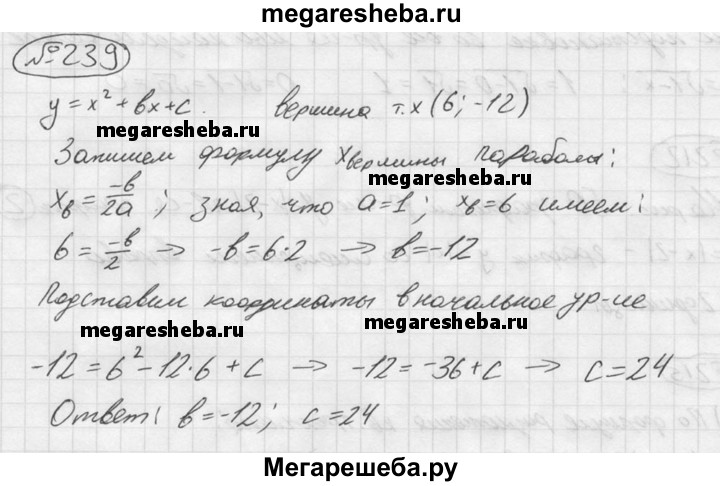 megaresheba.ru
№239
y = x² + bx + c. вершина т. х (6; -12)
megaresheba.ru
Запишем формулу x вершины параболы:
megaresheba.ru
xв = -b/2a ; зная, что a = 1; xв = 6 имеем:
6 = -b/2 → -b = 6·2 → b = -12
Подставим координаты в начальное ур-ие
megaresheba.ru megaresheba.ru
-12 = 6² - 12·6 + c → -12 = -36 + c → c = 24
Ответ: b = -12; c = 24
megaresheba.ru
Мегарешеба.ру